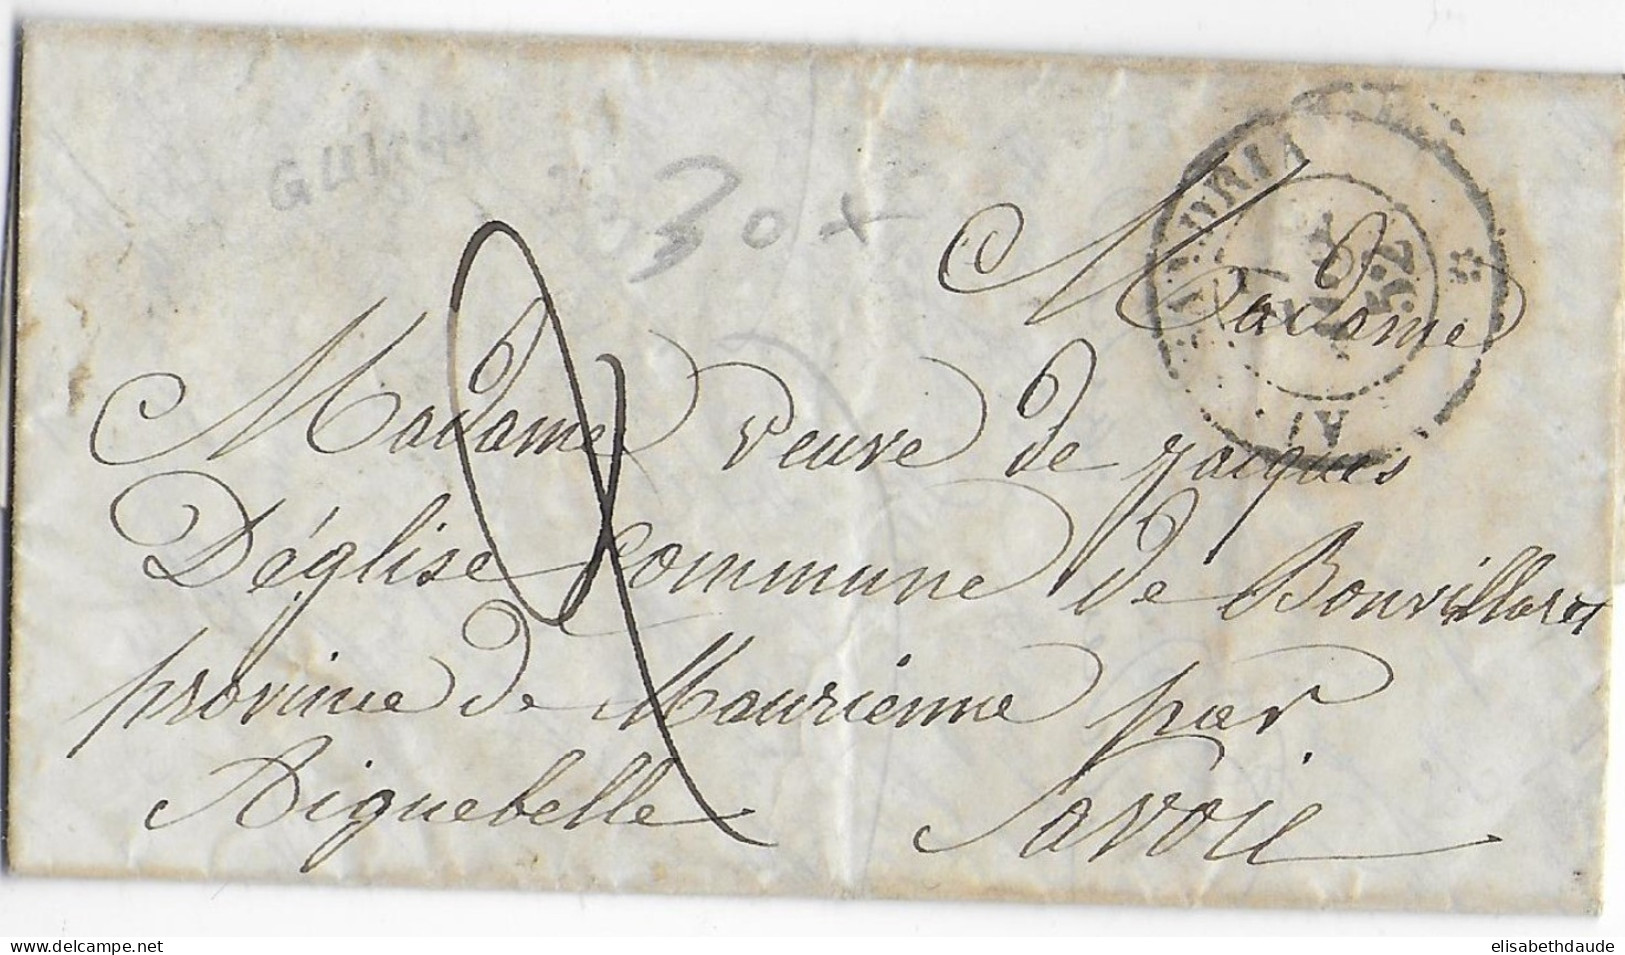 30 x
Madame
Madame veuve de jacques
Déglise Commune de Bonvillaret
province de Maurienne par
Aiguebelle Savoie
52
elisabethdaude - delcampe.net
elisabethdaude